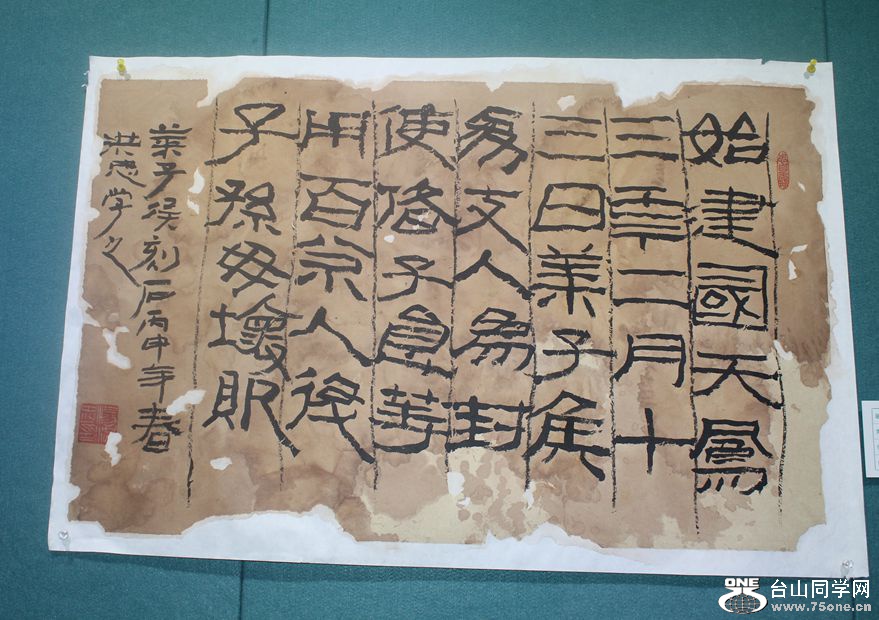 始建國天鳳
三年二月十
三日萊子侯
為支人為封
使偖子食等
用百余人後
子孫毋壞敗
萊子侯刻石丙申年春
洪忠学之
ONE
台山同学网
www.75one.cn